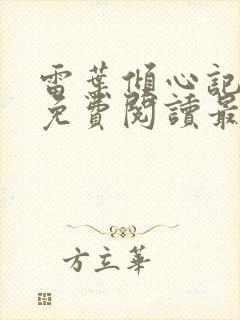 雷葉傾心記
免費閱讀最
方立華